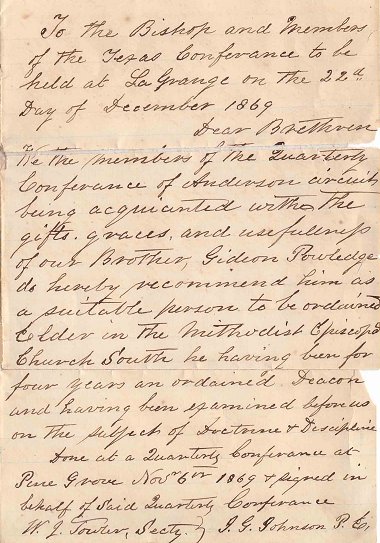 To the Bishop and Members
of the Texas Conferance to be
held at LaGrange on the 22d
Day of December 1869
Dear Brethren
We the members of the Quarterly
Conferance of Anderson circuit
being acquianted with the
gifts. graces, and usefullness
of our Brother, Gideon Powledge
do hereby recommend him as
a suitable person to be ordained
Elder in the Methodist Episcopal
Church South he having been for
four years an ordained Deacon
and having been examined before us
on the subject of Doctrine & Discipline
Done at a Quarterly Conferance at
Pine Grove Novr 6th 1869 & signed in
behalf of Said Quarterly Conferance
W. J. Towler, Secty. J. G. Johnson P. E.